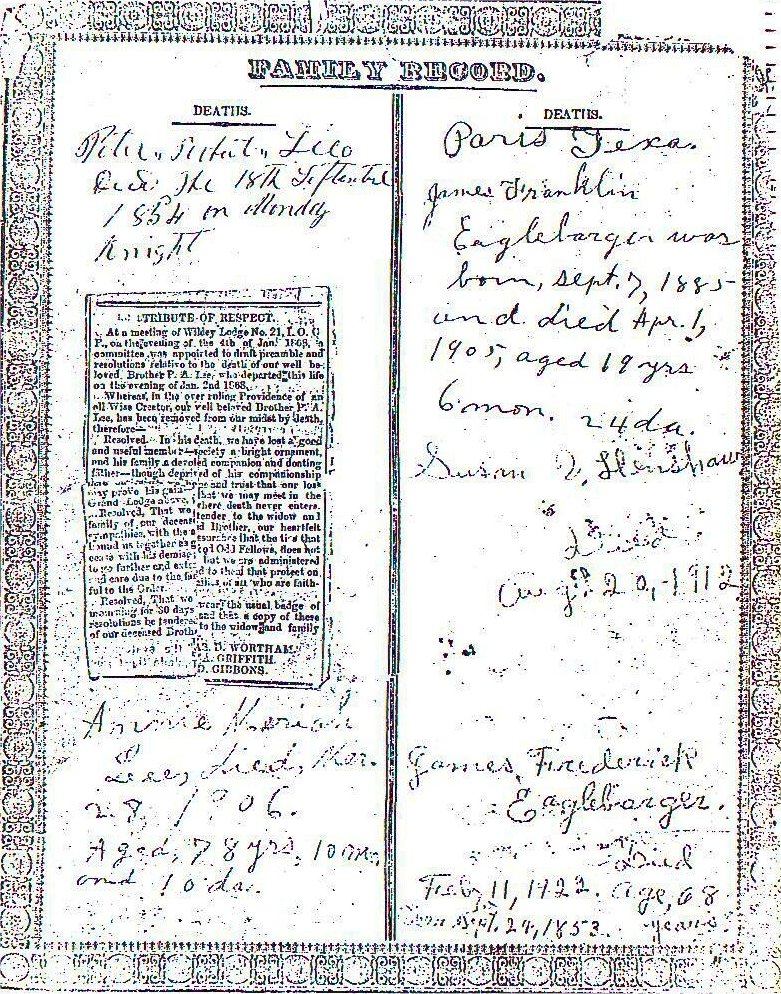 FAMILY RECORD.
DEATHS.
Lee
The 18th
1854 on Monday
Knight
TRIBUTE OF RESPECT.
At a meeting of Wildey Lodge No. 21, I. O. O
F., on the evening of the 4th of Jan. 1868, a
committee was appointed to draft preamble and
resolutions relative to the death of our well be-
loved, Brother P. A. Lee, who departed this life
on the evening of Jan. 2nd 1868.
Whereas, in the over ruling Providence of an
all-Wise Creator, our well beloved Brother P. A.
Lee, has been removed from our midst by death,
therefore—
Resolved. In his death, we have lost a good
and useful member—society a bright ornament,
and his family a devoted companion and doating
father—though deprived of his companionship
hope and trust that our loss
may prove his gain that we may meet in the
Grand Lodge above, where death never enters.
Resolved, That we tender to the widow and
family of our deceased Brother, our heartfelt
sympathies, with the assurance that the ties that
bound us together as good Odd Fellows, does not
cease with his demise, but we are administered
to go further and extend to them that protection
and care due to the families of all who are faith-
ful to the Order.
Resolved, That we wear the usual badge of
mourning for 30 days and that a copy of these
resolutions be tendered to the widow and family
of our deceased Brother
D. WORTHAM
A. GRIFFITH.
D. GIBBONS.
Annie Meriah
Lee, died, Mar.
28, 1906.
Aged, 78 yrs, 10 mo,
and 10 da.
DEATHS.
Paris Texa.
James Franklin
Eaglebarger was
born, Sept. 7, 1885
and died Apr. 1,
1905, aged 19 yrs
6 mon. 24 da.
Susan Henshaw
Died
Aug. 20, 1912
James Frederick
Eaglebarger.
Died
Feb, 11, 1922. Age, 68
Born Sept. 24, 1853. years.